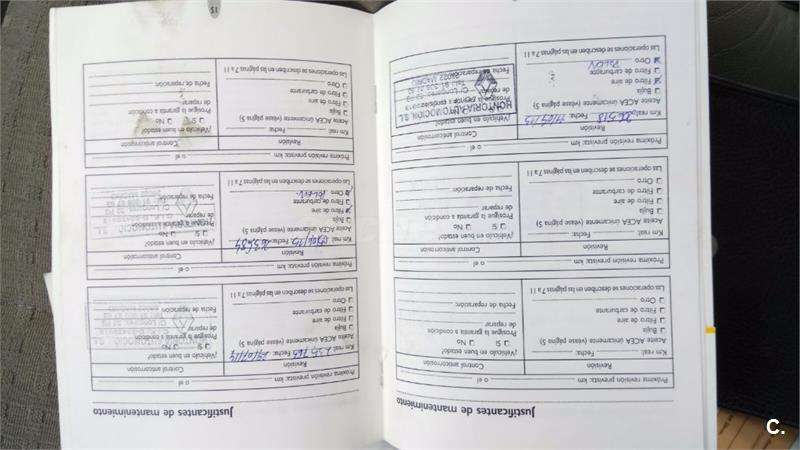 Justificantes de mantenimiento
Próxima revisión prevista: km o el
Revisión
Km real: Fecha:
Aceite ACEA únicamente (véase página 5)
❏ Bujía
❏ Filtro de aire
❏ Filtro de carburante
❏ Otro
Las operaciones se describen en las páginas 7 a 11
Control anticorrosión
¿Vehículo en buen estado?
❏ Sí ❏ No
Prosigue la garantía a condición
de reparar
Fecha de reparación:
Próxima revisión prevista: km o el
Revisión
Km real: Fecha:
Aceite ACEA únicamente (véase página 5)
❏ Bujía
❏ Filtro de aire
❏ Filtro de carburante
❏ Otro
Las operaciones se describen en las páginas 7 a 11
Control anticorrosión
¿Vehículo en buen estado?
❏ Sí ❏ No
Prosigue la garantía a condición
de reparar
Fecha de reparación:
Próxima revisión prevista: km o el
Revisión
Km real: Fecha:
Aceite ACEA únicamente (véase página 5)
❏ Bujía
❏ Filtro de aire
❏ Filtro de carburante
❏ Otro POLEN
Las operaciones se describen en las páginas 7 a 11
Control anticorrosión
¿Vehículo en buen estado?
HONTORIA AUTOMOCION, S.L.
Prosigue la garantía a condición
de reparar
28022 MADRID
Fecha de reparación:
Justificantes de mantenimiento
Próxima revisión prevista: km o el
Revisión
Km real: Fecha:
Aceite ACEA únicamente (véase página 5)
❏ Bujía
❏ Filtro de aire
❏ Filtro de carburante
❏ Otro
Las operaciones se describen en las páginas 7 a 11
Control anticorrosión
¿Vehículo en buen estado?
❏ Sí ❏ No
Prosigue la garantía a condición
de reparar
Fecha de reparación:
Próxima revisión prevista: km o el
Revisión
Km real: Fecha: 263684
Aceite ACEA únicamente (véase página 5)
❏ Bujía
❏ Filtro de aire
❏ Filtro de carburante
❏ Otro POLEN
Las operaciones se describen en las páginas 7 a 11
Control anticorrosión
¿Vehículo en buen estado?
❏ Sí ❏ No
Prosigue la garantía a condición
de reparar
Fecha de reparación:
Próxima revisión prevista: km o el
Revisión
Km real: Fecha:
Aceite ACEA únicamente (véase página 5)
❏ Bujía
❏ Filtro de aire
❏ Filtro de carburante
❏ Otro
Las operaciones se describen en las páginas 7 a 11
Control anticorrosión
¿Vehículo en buen estado?
❏ Sí ❏ No
Prosigue la garantía a condición
de reparar
Fecha de reparación:
15
C.